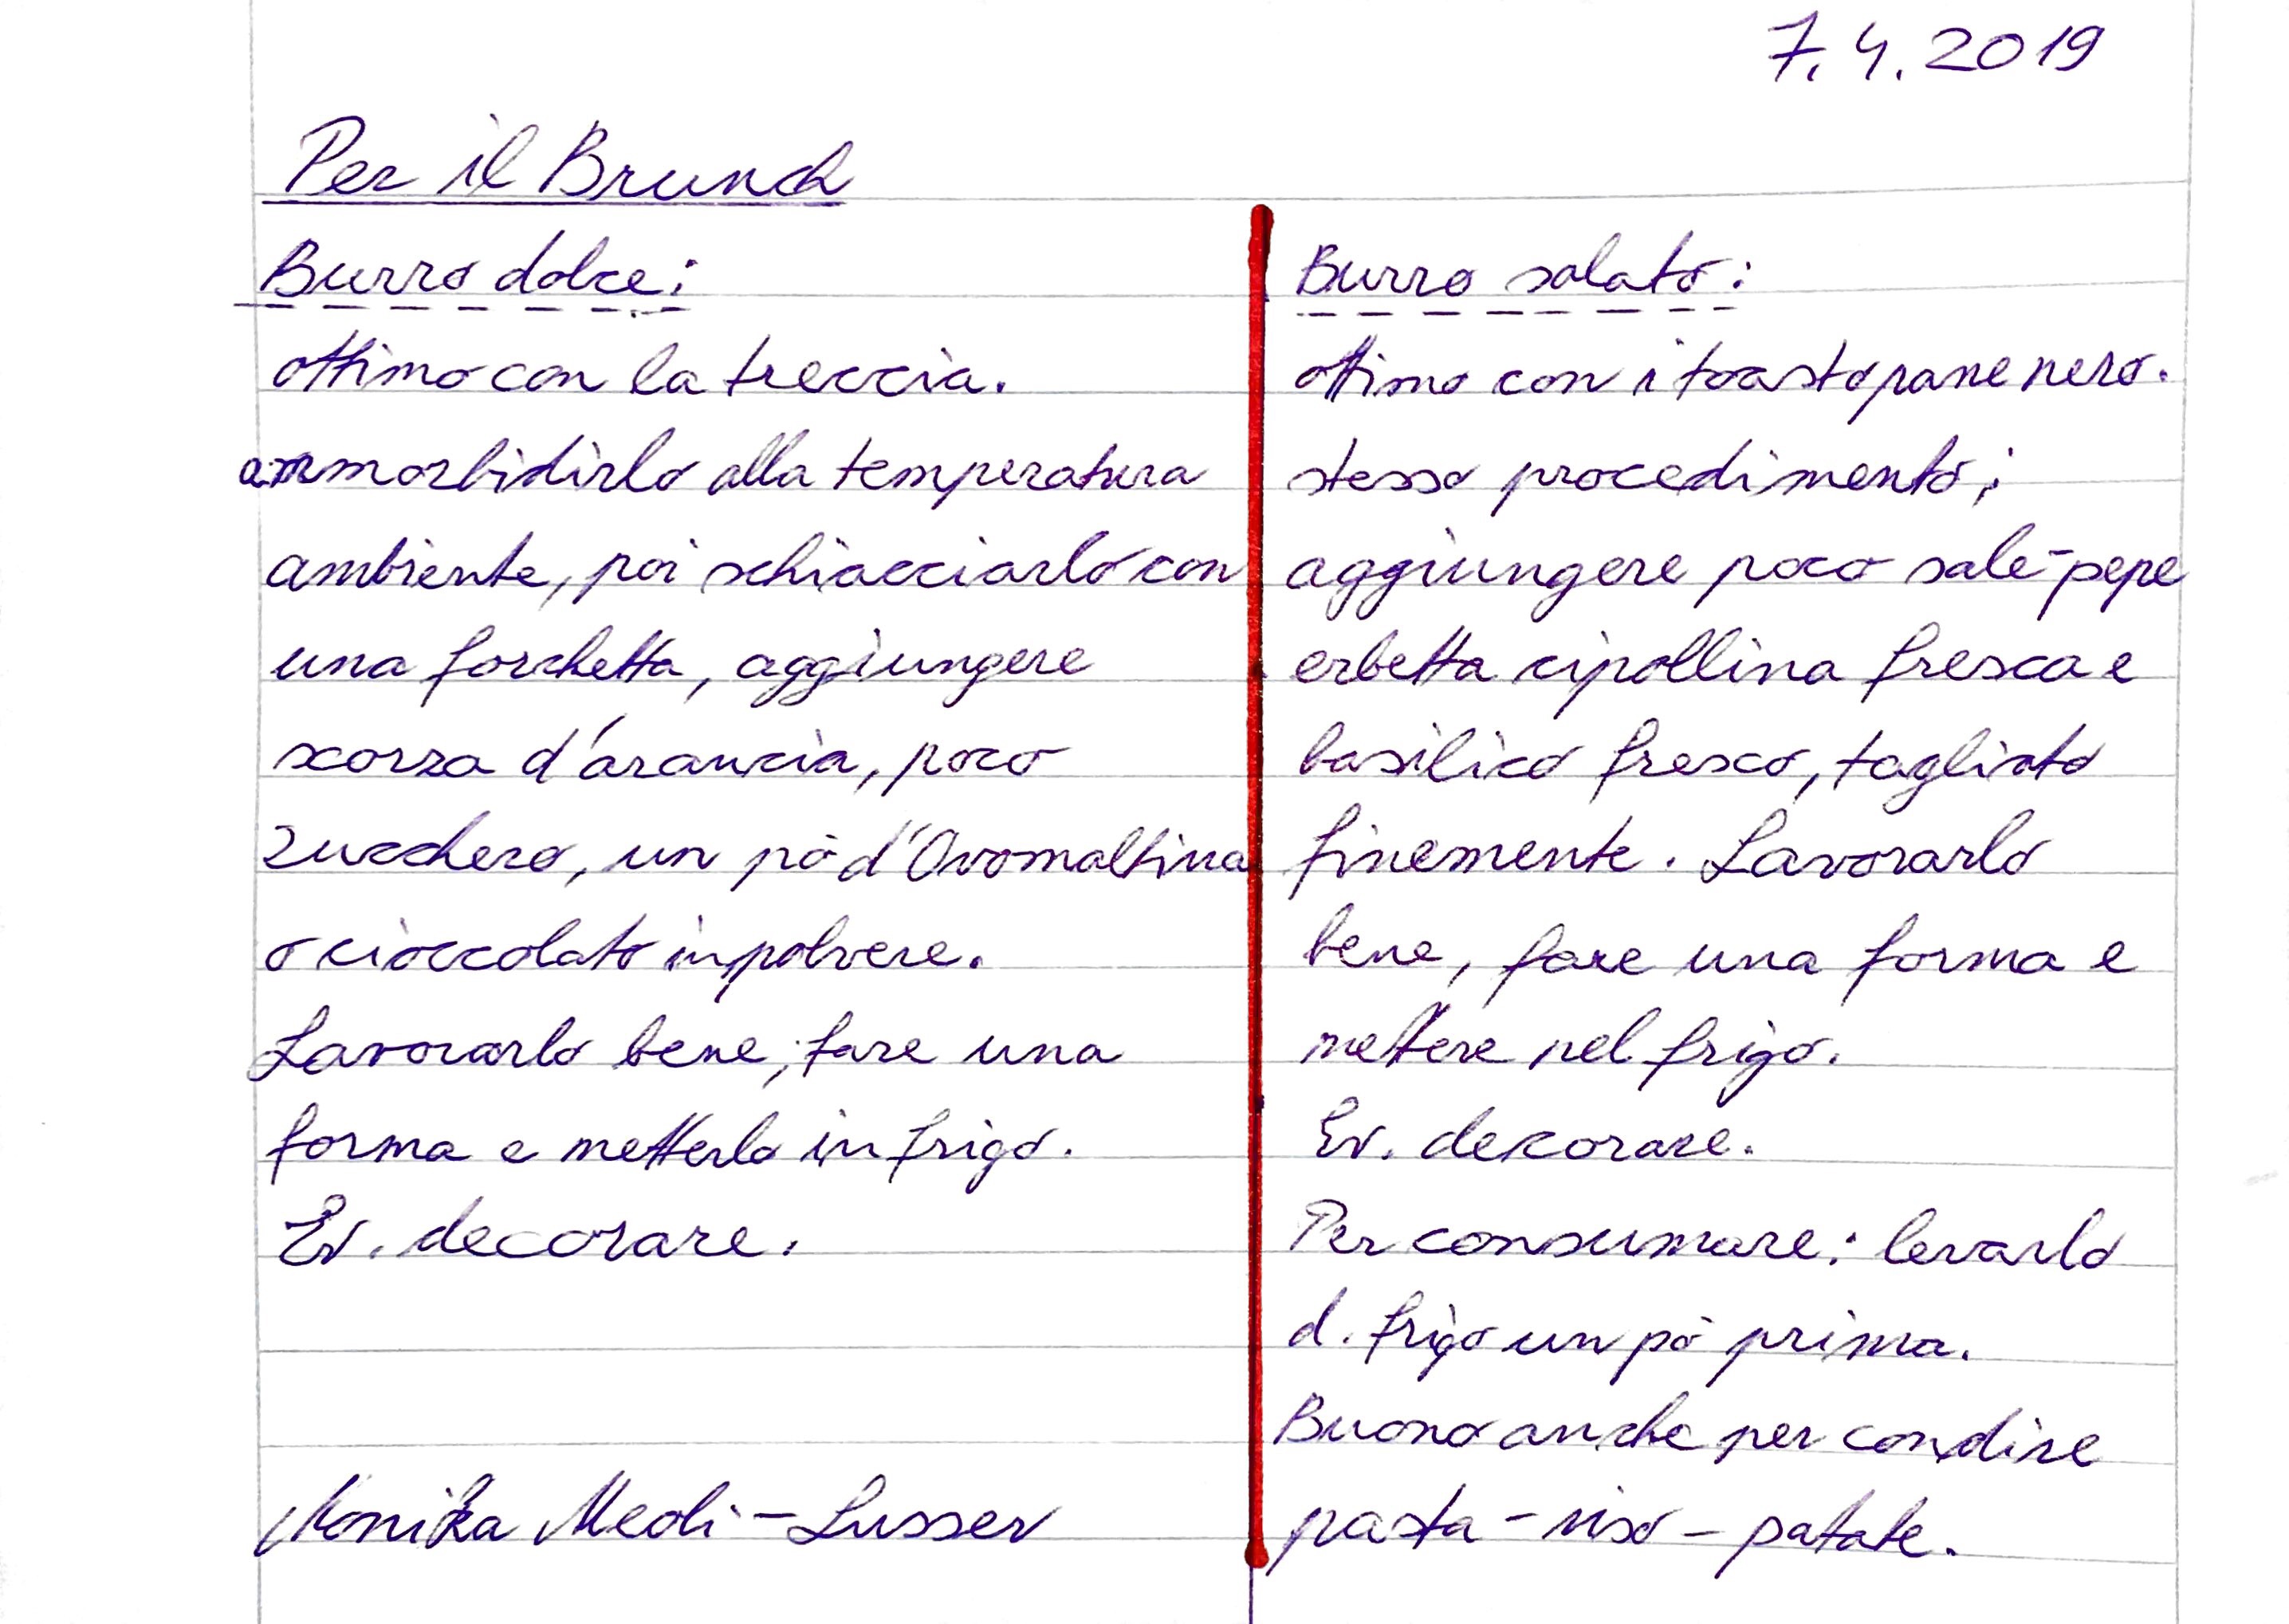 7.4.2019
Per il Brunch
Burro dolce:
ottimo con la treccia.
ammorbidirlo alla temperatura
ambiente, poi schiacciarlo con
una forchetta, aggiungere
scorza d'arancia, poco
zucchero, un pò d'Ovomaltina
o cioccolato in polvere.
Lavorarlo bene, fare una
forma e metterlo in frigo.
Ev. decorare.
Monika Meoli-Lusser
Burro salato:
ottimo con i toast o pane nero.
stesso procedimento;
aggiungere poco sale-pepe
erbetta cipollina fresca e
basilico fresco, tagliato
finemente. Lavorarlo
bene, fare una forma e
mettere nel frigo.
Ev. decorare.
Per consumare: levarlo
d. frigo un pò prima.
Buono anche per condire
pasta - riso - patate.